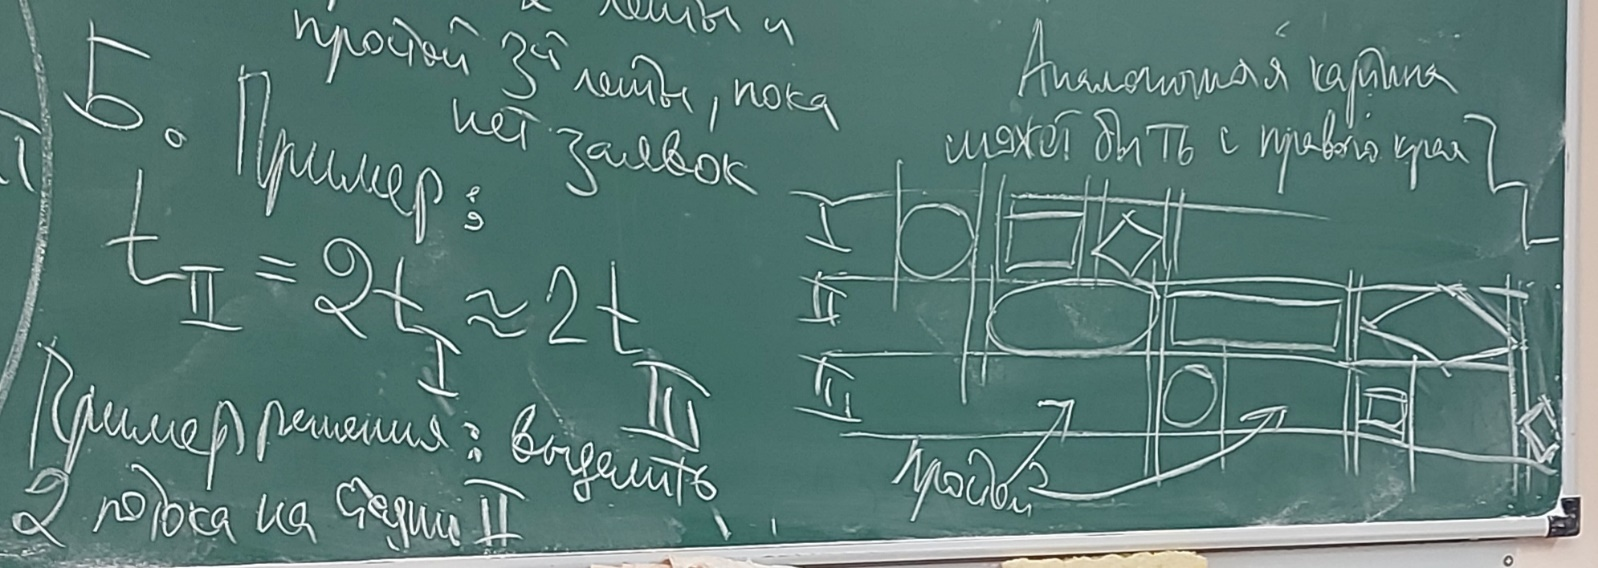 ленты и
простой 3й ленты, пока
нет заявок
Б. Пример:
t II = 2t I ≈ 2t III
Пример решения: выделить
2 потока на стадии II
Аналогичная картина
может быть с правого края
I
II
III
Простои